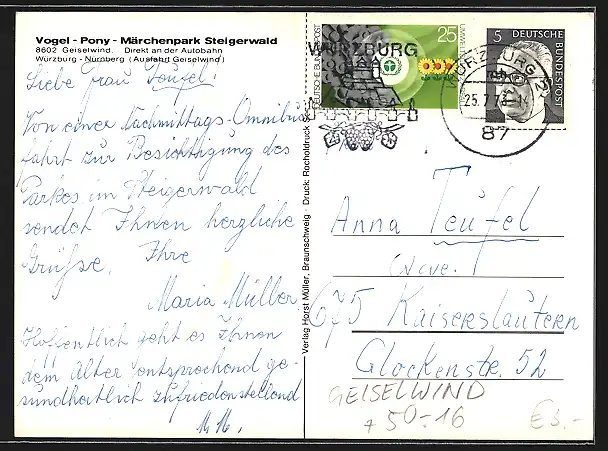 Vogel - Pony - Märchenpark Steigerwald
8602 Geiselwind. Direkt an der Autobahn
Würzburg - Nürnberg (Ausfahrt Geiselwind)
Liebe Frau Teufel!
Von einer Nachmittags-Omnibus
fahrt zur Besichtigung des
Parkes im Steigerwald
sendet Ihnen herzliche
Grüße, Ihre
Maria Müller
Hoffentlich geht es Ihnen
dem Alter entsprechend ge-
sundheitlich zufriedenstellend
M. M.
Verlag Horst Müller, Braunschweig Druck: Rocholdruck
DEUTSCHE BUNDESPOST
25
WÜRZBURG
5
DEUTSCHE
BUNDESPOST
WÜRZBURG 2
25.7.7
87
Anna Teufel
675 Kaiserslautern
Glockenstr. 52
GEISELWIND
50-16
€3.-